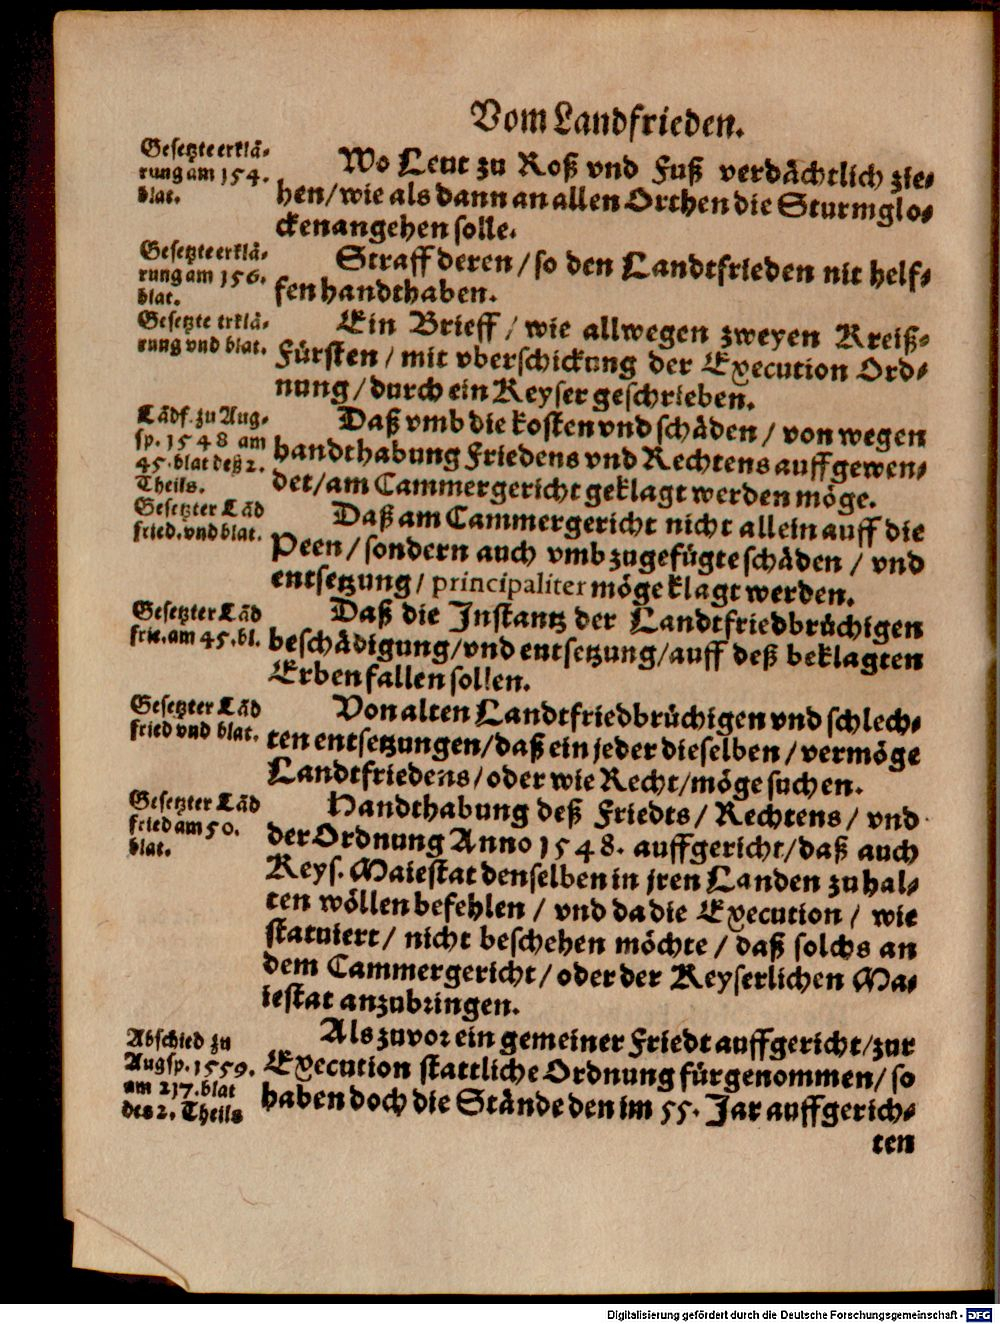 Vom Landfrieden.
Gesetzte erklä-
rung am 154.
blat.
Wo Leut zu Roß vnd Fuß verdächtlich zie-
hen/wie als dann an allen Orthen die Sturmglo-
cken angehen solle.
Gesetzte erklä-
rung am 156.
blat.
Straff deren/so den Landtfrieden nit helf-
fen handthaben.
Gesetzte erklä-
rung vnd blat.
Ein Brieff/wie allwegen zweyen Kreiß-
Fürsten/mit vberschickung der Execution Ord-
nung/durch ein Keyser geschrieben.
Lādf. zu Aug-
sp. 1548 am
45. blat deß 2.
Theils.
Daß vmb die kosten vnd schäden/von wegen
handthabung Friedens vnd Rechtens auffgewen-
det/am Cammergericht geklagt werden möge.
Gesetzter Lād
fried. vnd blat.
Daß am Cammergericht nicht allein auff die
Peen/sondern auch vmb zugefügte schäden/vnd
entsetzung/principaliter möge klagt werden.
Gesetzter Lād
frie. am 45. bl.
Daß die Instantz der Landtfriedbrüchigen
beschädigung/vnd entsetzung/auff deß beklagten
Erben fallen sollen.
Gesetzter Lād
fried vnd blat.
Von alten Landtfriedbrüchigen vnd schlech-
ten entsetzungen/daß ein jeder dieselben/vermöge
Landtfriedens/oder wie Recht/möge suchen.
Gesetzter Lād
fried am 50.
blat.
Handthabung deß Friedts/Rechtens/vnd
der Ordnung Anno 1548. auffgericht/daß auch
Keys. Maiestat denselben in jren Landen zu hal-
ten wöllen befehlen/vnd da die Execution/wie
statuiert/nicht beschehen möchte/daß solchs an
dem Cammergericht/oder der Keyserlichen Ma-
iestat anzubringen.
Abschied zu
Augsp. 1559.
am 217. blat
des 2. Theils
Als zuvor ein gemeiner Friedt auffgericht/zur
Execution stattliche Ordnung fürgenommen/so
haben doch die Stände den im 55. Jar auffgerich-
ten
Digitalisierung gefördert durch die Deutsche Forschungsgemeinschaft - DFG